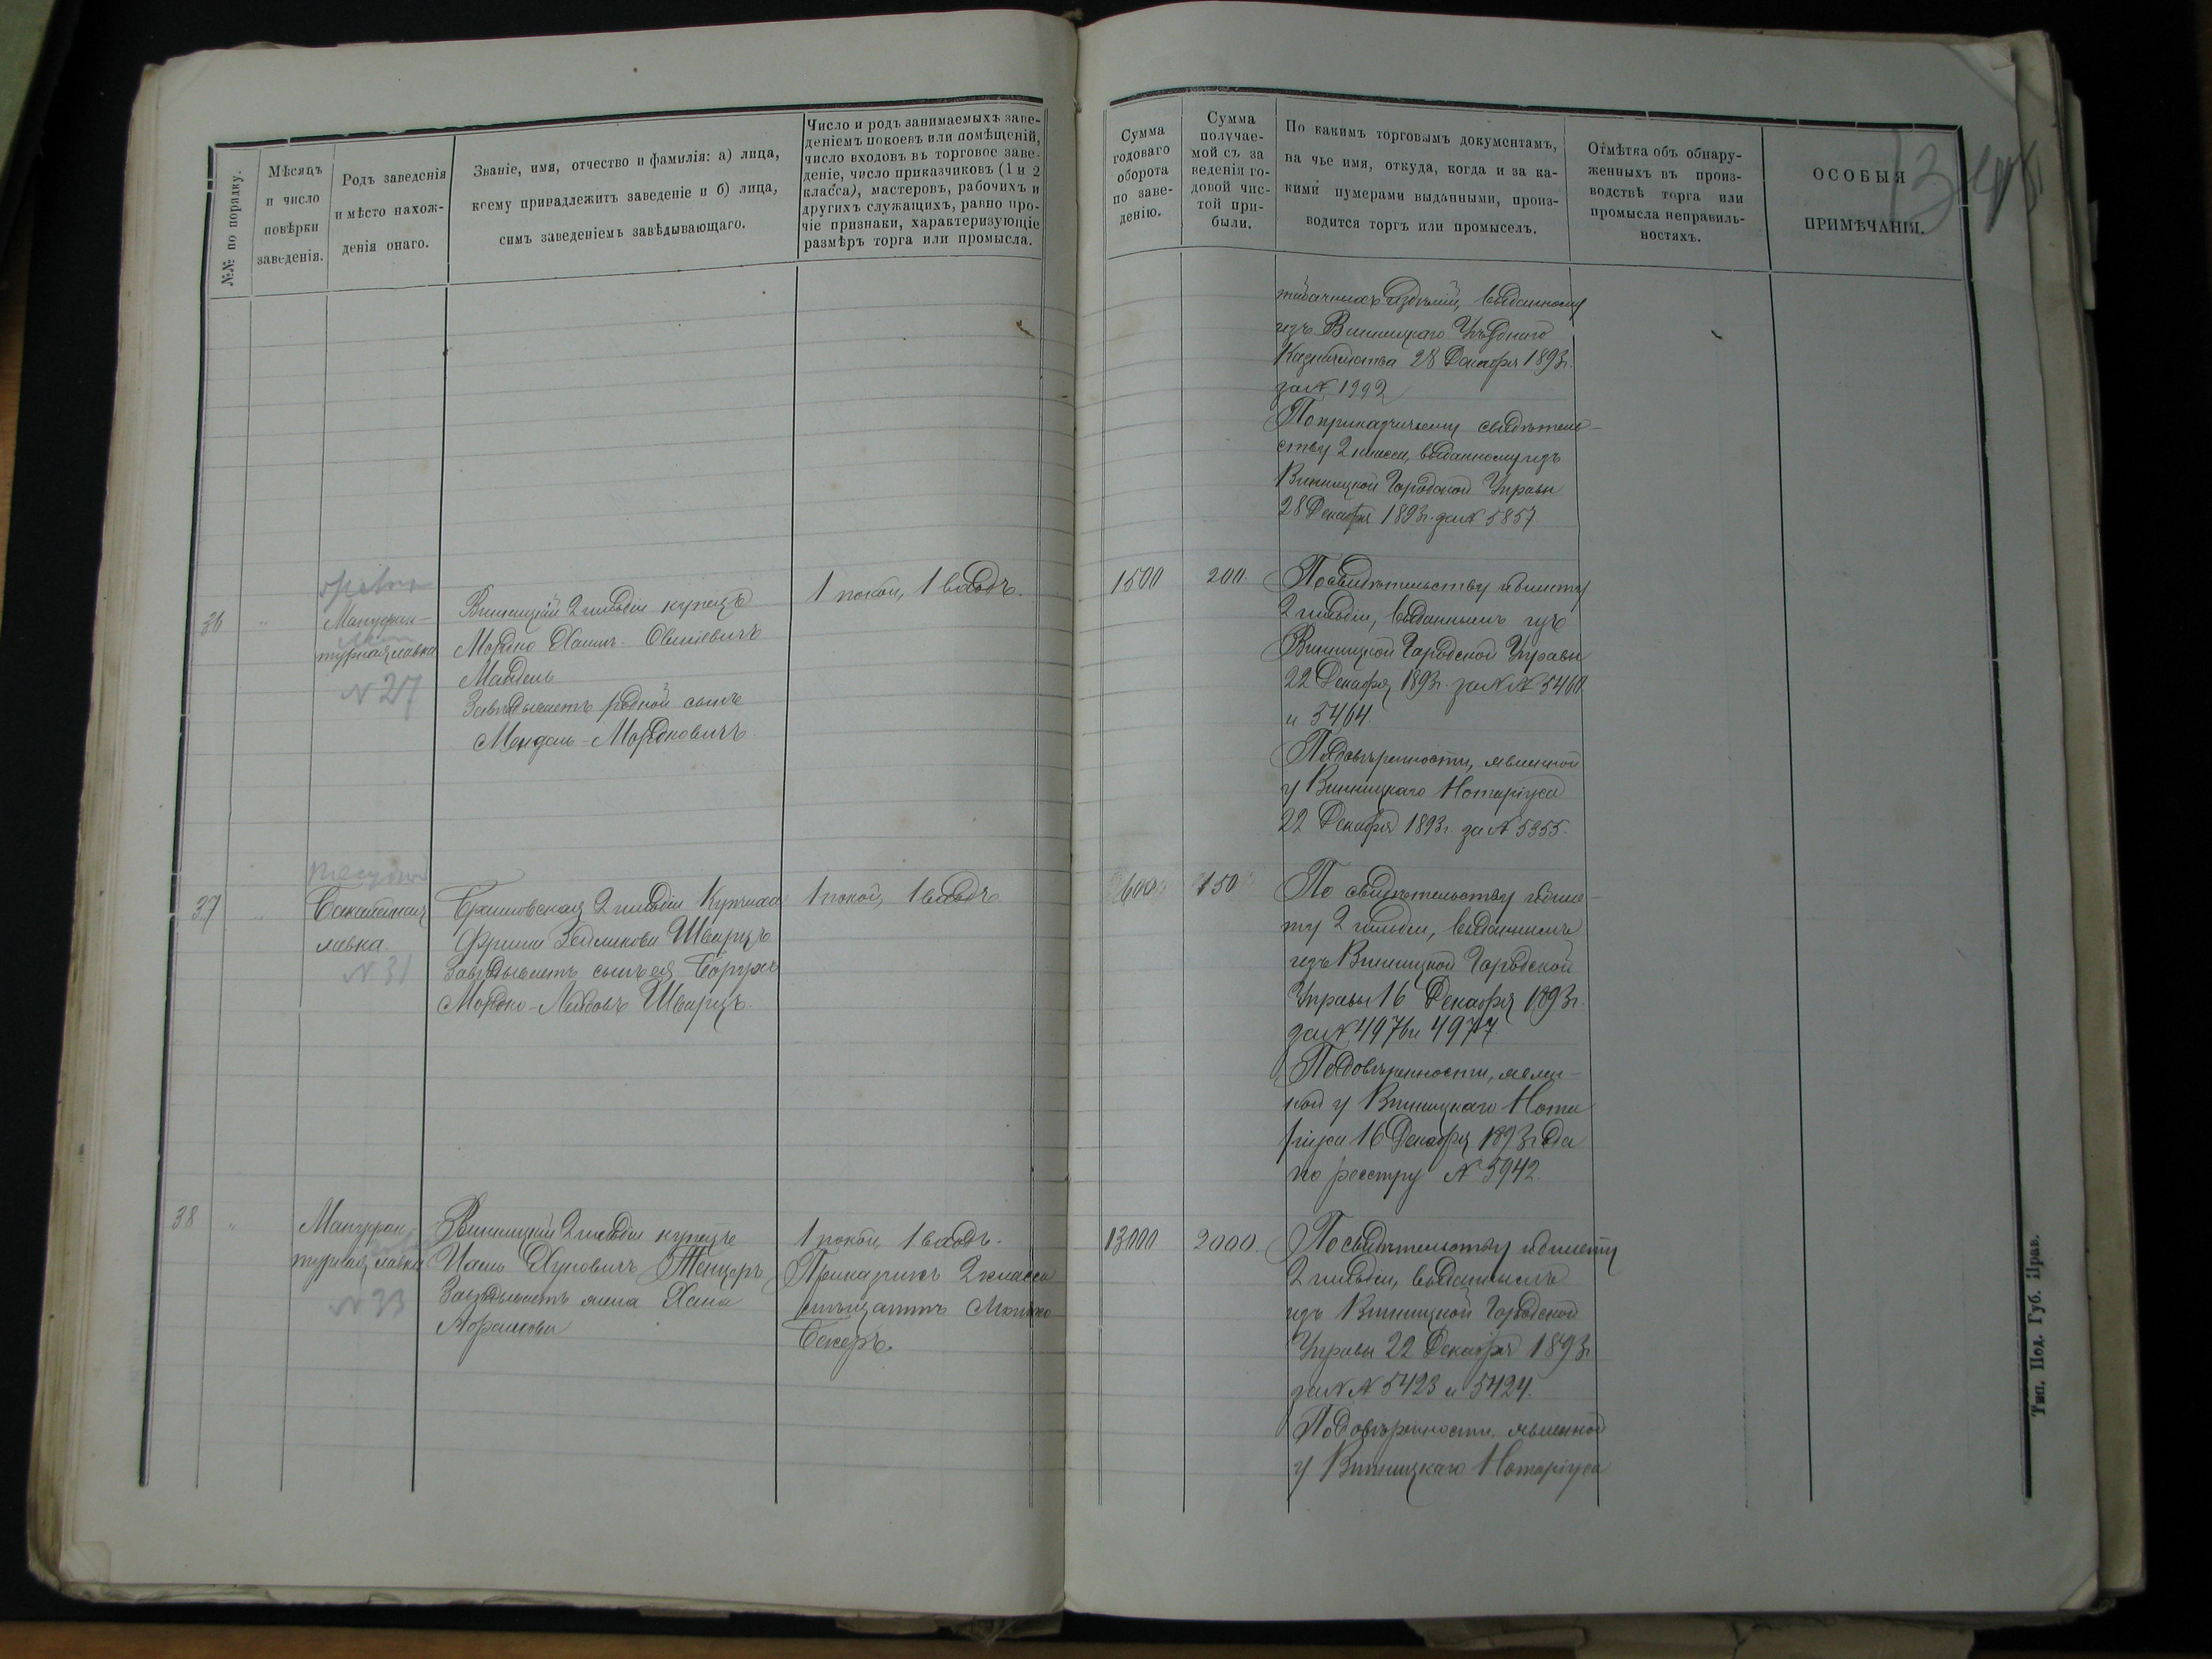 №№ по порядку.
Мѣсяцъ
и число
повѣрки
заведенія.
Родъ заведенія
и мѣсто нахож-
денія онаго.
Званіе, имя, отчество и фамилія: а) лица,
коему принадлежитъ заведеніе и б) лица,
симъ заведеніемъ завѣдывающаго.
Число и родъ занимаемыхъ заве-
деніемъ покоевъ или помѣщеній,
число входовъ въ торговое заве-
деніе, число приказчиковъ (1 и 2
класса), мастеровъ, рабочихъ и
другихъ служащихъ, равно про-
чіе признаки, характеризующіе
размѣръ торга или промысла.
36
"
Мануфак-
турная лавка
N 27
Винницкій 2 гильдіи купецъ
Мордко Хаимъ-Овшіевичъ
Мандель
Завѣдываетъ родной сынъ
Мендель-Мордковичъ.
1 покой, 1 входъ.
37
"
Бакалейная
лавка
N 31
Браиловская 2 гильдіи Купчиха
Фрима Зейликова Шварцъ
Завѣдываетъ сынъ ея Борухъ
Мордко-Лейбовъ Шварцъ.
1 покой, 1 входъ
38
"
Мануфак-
турная лавка
N 33
Винницкій 2 гильдіи купецъ
Хуновичъ Тенцеръ
Завѣдываетъ жена Хана
Абрамова
1 покой, 1 входъ.
Приказчикъ 2 класса
мѣщанинъ
Бекеръ.
Сумма
годоваго
оборота
по заве-
денію.
Сумма
получае-
мой съ за
веденія го-
довой чис-
той при-
были.
По какимъ торговымъ документамъ,
на чье имя, откуда, когда и за ка-
кими нумерами выданными, произ-
водится торгъ или промыселъ.
Отмѣтка объ обнару-
женныхъ въ произ-
водствѣ торга или
промысла неправиль-
ностяхъ.
ОСОБЫЯ
ПРИМѢЧАНІЯ.
табачныхъ издѣлій, выданному
изъ Винницкаго Уѣзднаго
Казначейства 28 Декабря 1893г.
за N 1992
По приказчичьему свидѣтель-
ству 2 класса, выданному изъ
Винницкой Городской Управы
28 Декабря 1893г. за N 5857
1500
200.
По свидѣтельству и билету
2 гильдіи, выданнымъ изъ
Винницкой Городской Управы
22 Декабря 1893г. за N N 5460
и 5464.
По довѣренности, явленной
у Винницкаго Нотаріуса
22 Декабря 1893г. за N 5355.
600
150
По свидѣтельству и биле-
ту 2 гильдіи, выданнымъ
изъ Винницкой Городской
Управы 16 Декабря 1893г.
за N 4976 и 4977.
По довѣренности, явлен-
ной у Винницкаго Нота
ріуса 16 Декабря 1893 года
по реестру N 5942.
13000
2000.
По свидѣтельству и билету
2 гильдіи, выданнымъ
изъ Винницкой Городской
Управы 22 Декабря 1893г
за N N 5423 и 5424.
По довѣренности явленной
у Винницкаго Нотаріуса
Тип. Под. Губ. Прав.